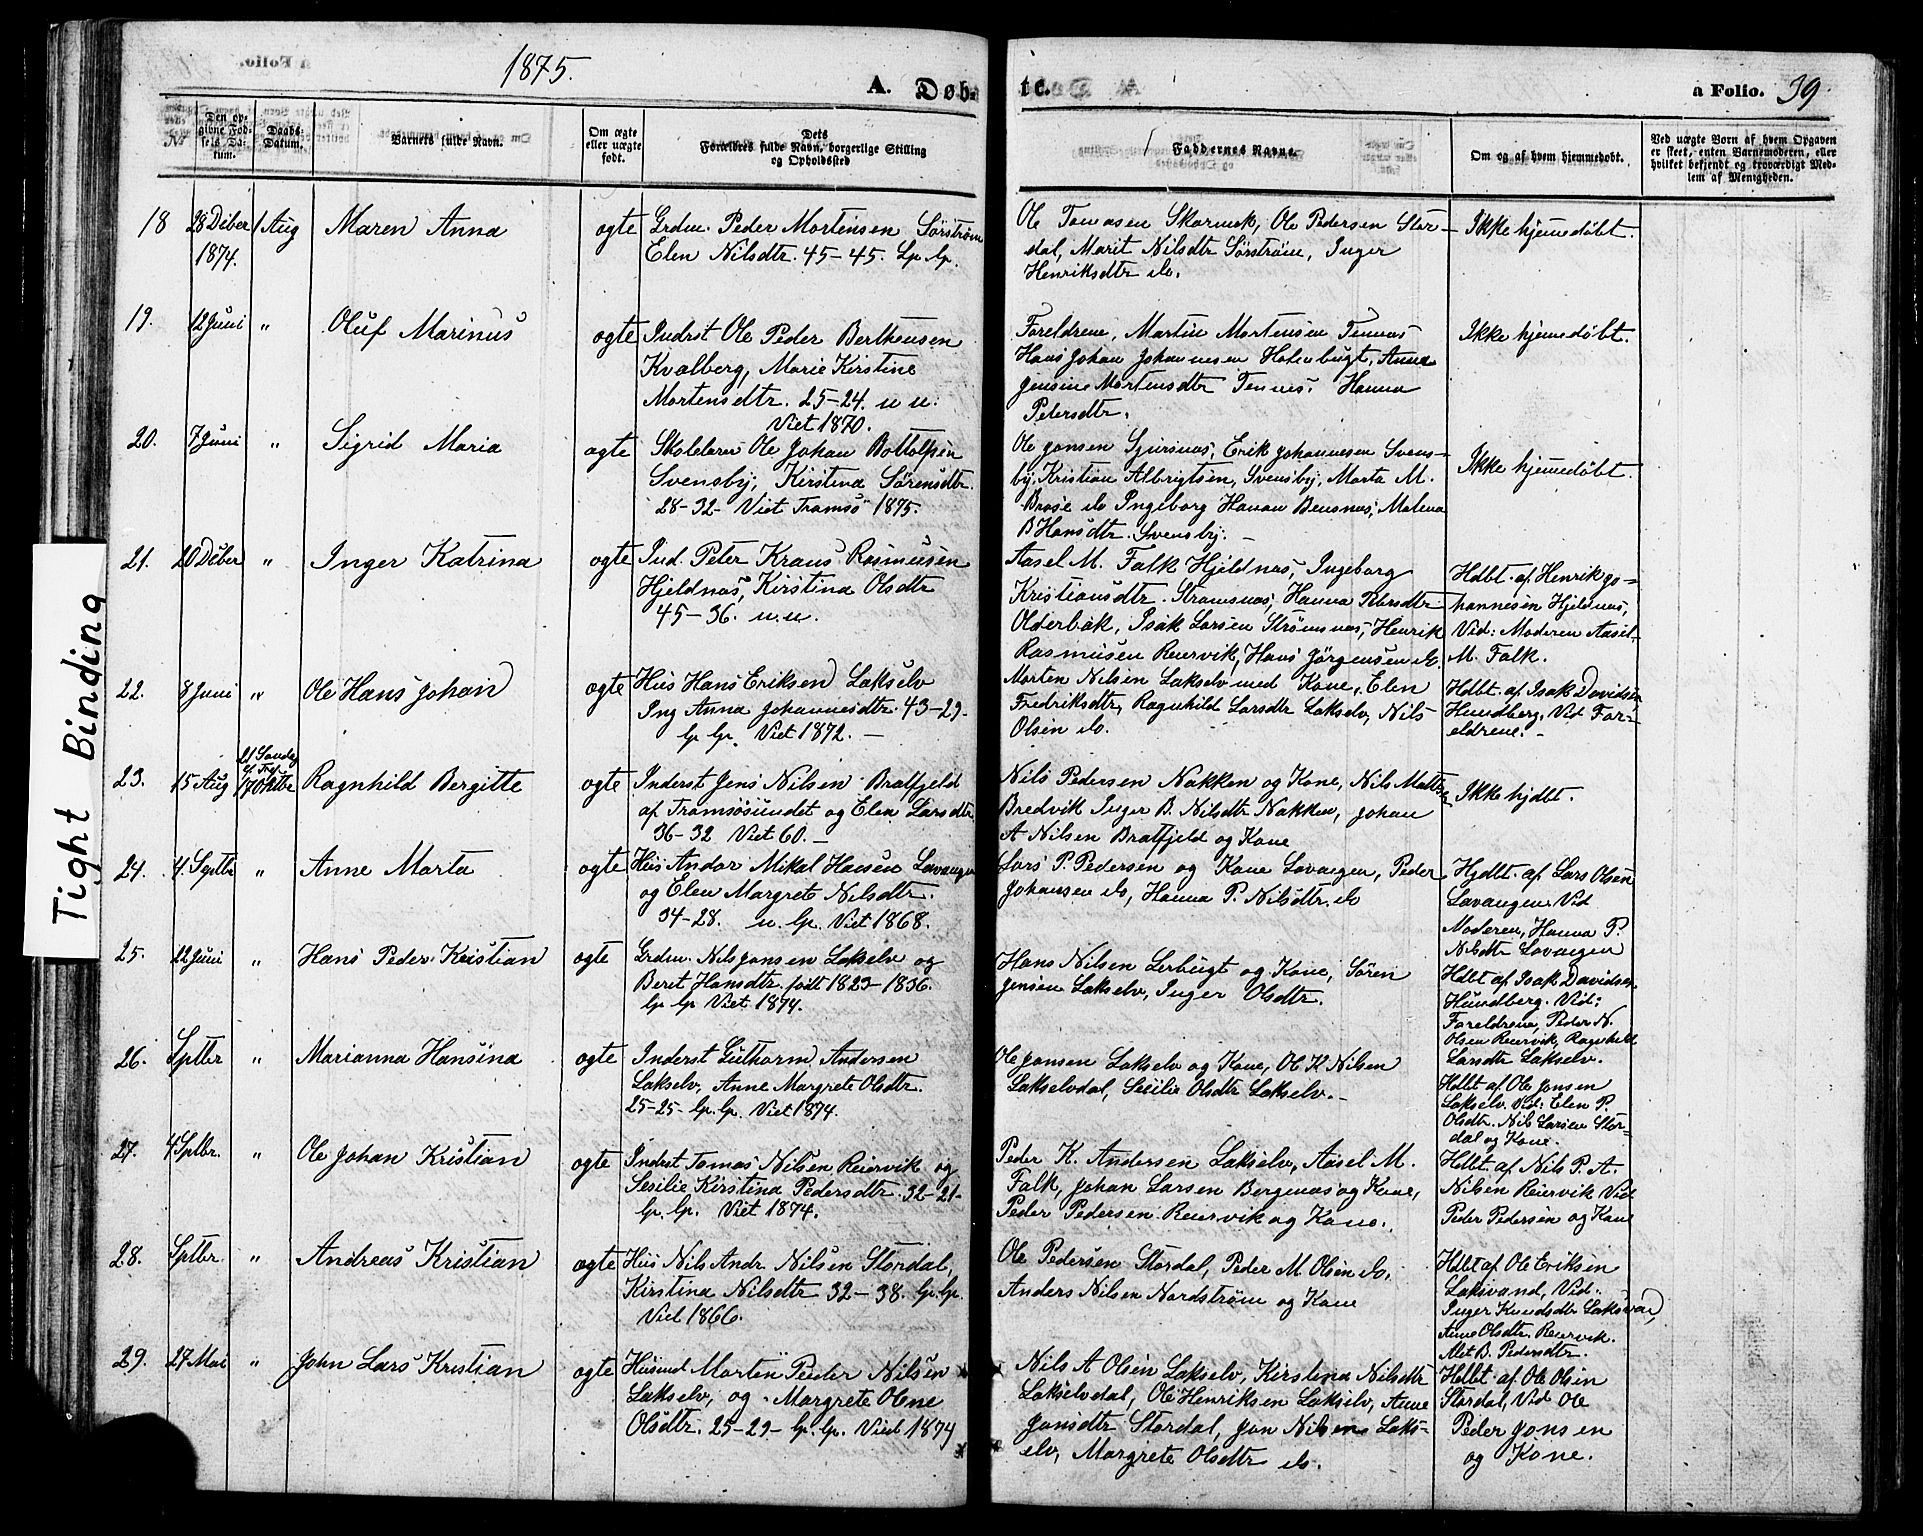 1875.
A. Døb-
te.
a Folio. 39
Tight Binding
Nr
Den op-
givne Fød-
sels Da-
tum.
Daabs-
Datum.
Barnets fulde Navn.
Om ægte
eller uægte
født.
Dets
Forældres fulde Navn, borgerlige Stilling
og Opholdssted
Faddernes Navne.
Om og af hvem hjemmedøbt.
Ved uægte Børn af hvem Opgaven
er skeet, enten Barnemoderen, eller
hvilket bekjendt og troværdigt Med-
lem af Menigheden.
18 28 Dcber 1 Aug Maren Anna ogte Grdm. Peder Mortensen Sørstrøm
1874. Elen Nilsdtr. 45-45. Lp. lp.
Ole Tomasen Skarmok, Ole Pedersen Stor-
dal, Marit Nilsdtr Sørstrøm, Inger
Henriksdtr do.
Ikke hjemedøbt.
19. 12 Juni " Oluf Marinus ogte Inderst Ole Peder Berthensen
Kvalberg, Marie Kirstine
Mortensdtr. 25-24. n n.
Viet 1870.
Foreldrene, Martin Mortensen Tennes
Hans Johan Johannesen Holmbugt, Anne
Jensine Mortensdtr Tennes. Hanna
Petersdtr.
Ikke hjemedøbt.
20. 7 Juni " Sigrid Maria ogte Skolelærer Ole Johan Bottolfsen
Svensby, Kirstina Sørensdtr.
28-32- Viet Tromsö 1875.
Ole Jonsen Sjursnæs, Erik Johannesen Svens-
by, Kristian Albrigtsen, Svensby, Marta M.
Brose do Ingeborg Hanna Bensnes, Malena
B Hansdtr. Svensby. -
Ikke hjemedøbt.
21. 20 Dcber " Inger Katrina ogte Ind. Peter Kraus Rasmusen
Hjeldnæs, Kirstina Olsdtr
45-36. n.n.
Aasel M. Falk Hjeldnæs, Ingeborg
Kristiansdtr. Strømsnæs, Hanna Petersdtr
Olderbak, Isak Larsen Strømsnæs, Henrik
Rasmusen Reiervik, Hans Jörgensen do.
Hdbt. af Henrik Jo-
hannesen Hjeldnæs,
Vid: Moderen Aasel
M. Falk.
22. 8 Juni " Ole Hans Johan ogte Hus Hans Eriksen Lakselv
Ing Anna Johannesdtr. 43-29.
lp. lp. Viet 1872. -
Morten Nilsen Lakselv med Kone, Elen
Fredriksdtr, Ragnhild Larsdtr Lakselv, Nils
Olsen do.
Hdbt. af Isak Davidsen
Hundberg. Vid For-
eldrene. -
21 Søndag
e/ Tref
23. 15 Aug 17 Oktbr Ragnhild Bergitte ogte Inderst Jens Nilsen Bratfjeld
af Tromsøsundet og Elen Larsdtr.
36-32 Viet 60. -
Nils Pedersen Nakken og Kone, Nils Mattsen
Bredvik Inger B. Nilsdtr Nakken, Johan
A Nilsen Bratfjeld og Kone
Ikke hjdbt.
24. 4. Septbr " Anne Marta ogte Hus Andor Mikal Hansen Lavangen
og Elen Margrete Nilsdtr.
34-28. n. lp. Viet 1868.
Lars P. Pedersen og Kone Lavangen, Peder
Johansen do, Hanna P. Nilsdtr. do
Hjdbt. af Lars Olsen
Lavangen. Vid
Moderen, Hanna P.
Nilsdtr Lavangen
25. 22 Juni " Hans Peder Kristian ogte Grdm. Nils Jonsen Lakselv og
Beret Hansdtr. født 1823-1836.
lp. lp. Viet 1874.
Hans Nilsen Lerbugt og Kone, Sören
Jensen Lakselv, Inger Olsdtr.
Hdbt af Isak Davidsen
Hundberg. Vid:
Foreldrene, Peder N.
Olsen Reiervik, Ragnhild
Larsdtr Lakselv.
26. Sptbr " Marianna Hansina ogte Inderst Guthorm Andersen
Lakselv, Anne Margrete Olsdtr.
25-25- lp. lp. Viet 1874.
Ole Jonsen Lakselv og Kone, Ole K Nilsen
Lakselvdal, Sesilie Olsdtr Lakselv. -
Hdbt af Ole Jonsen
Lakselv. Vid: Elen P.
Olsdtr. Nils Larsen Stor-
dal og Kone.
27. 4 Sptbr. " Ole Johan Kristian ogte Inderst Tomas Nilsen Reiervik og
Sesilie Kirstina Pedersdtr. 32-21-
lp. lp. Viet 1874.
Peder K. Andersen Lakselv, Aasel M.
Falk, Johan Larsen Bergenæs og Kone,
Peder Pedersen Reiervik og Kone.
Hdbt. af Nils P. A.
Nilsen Reiervik Vid
Peder Pedersen og Kone
28. Sptbr. " Andreas Kristian ogte Hus Nils Andr. Nilsen Stordal,
Kirstina Nilsdtr 32-38. lp. lp.
Viet 1866.
Ole Pedersen Stordal, Peder M Olsen do,
Anders Nilsen Nordstrøm og Kone
Hdbt af Ole Eriksen
Laksvand, Vid:
Inger Knudsdtr Laksvand,
Anne Olsdtr. Reiervik.
Alet B. Pedersdtr.
29. 27 Mai " John Lars Kristian ogte Husmd Morten Peder Nilsen
Lakselv, og Margrete Olene
Olsdtr. 25-29- lp. lp. Viet 1874
Nils A Olsen Lakselv, Kirstina Nilsdtr
Lakselvdal, Ole Henriksen Lakselv, Anne
Jonsdtr Stordal, Jon Nilsen Laks-
elv, Margrete Olsdtr do.
Hdbt. af Ole Olsen
Stordal, Vid Ole
Peder Jonsen
og Kone.